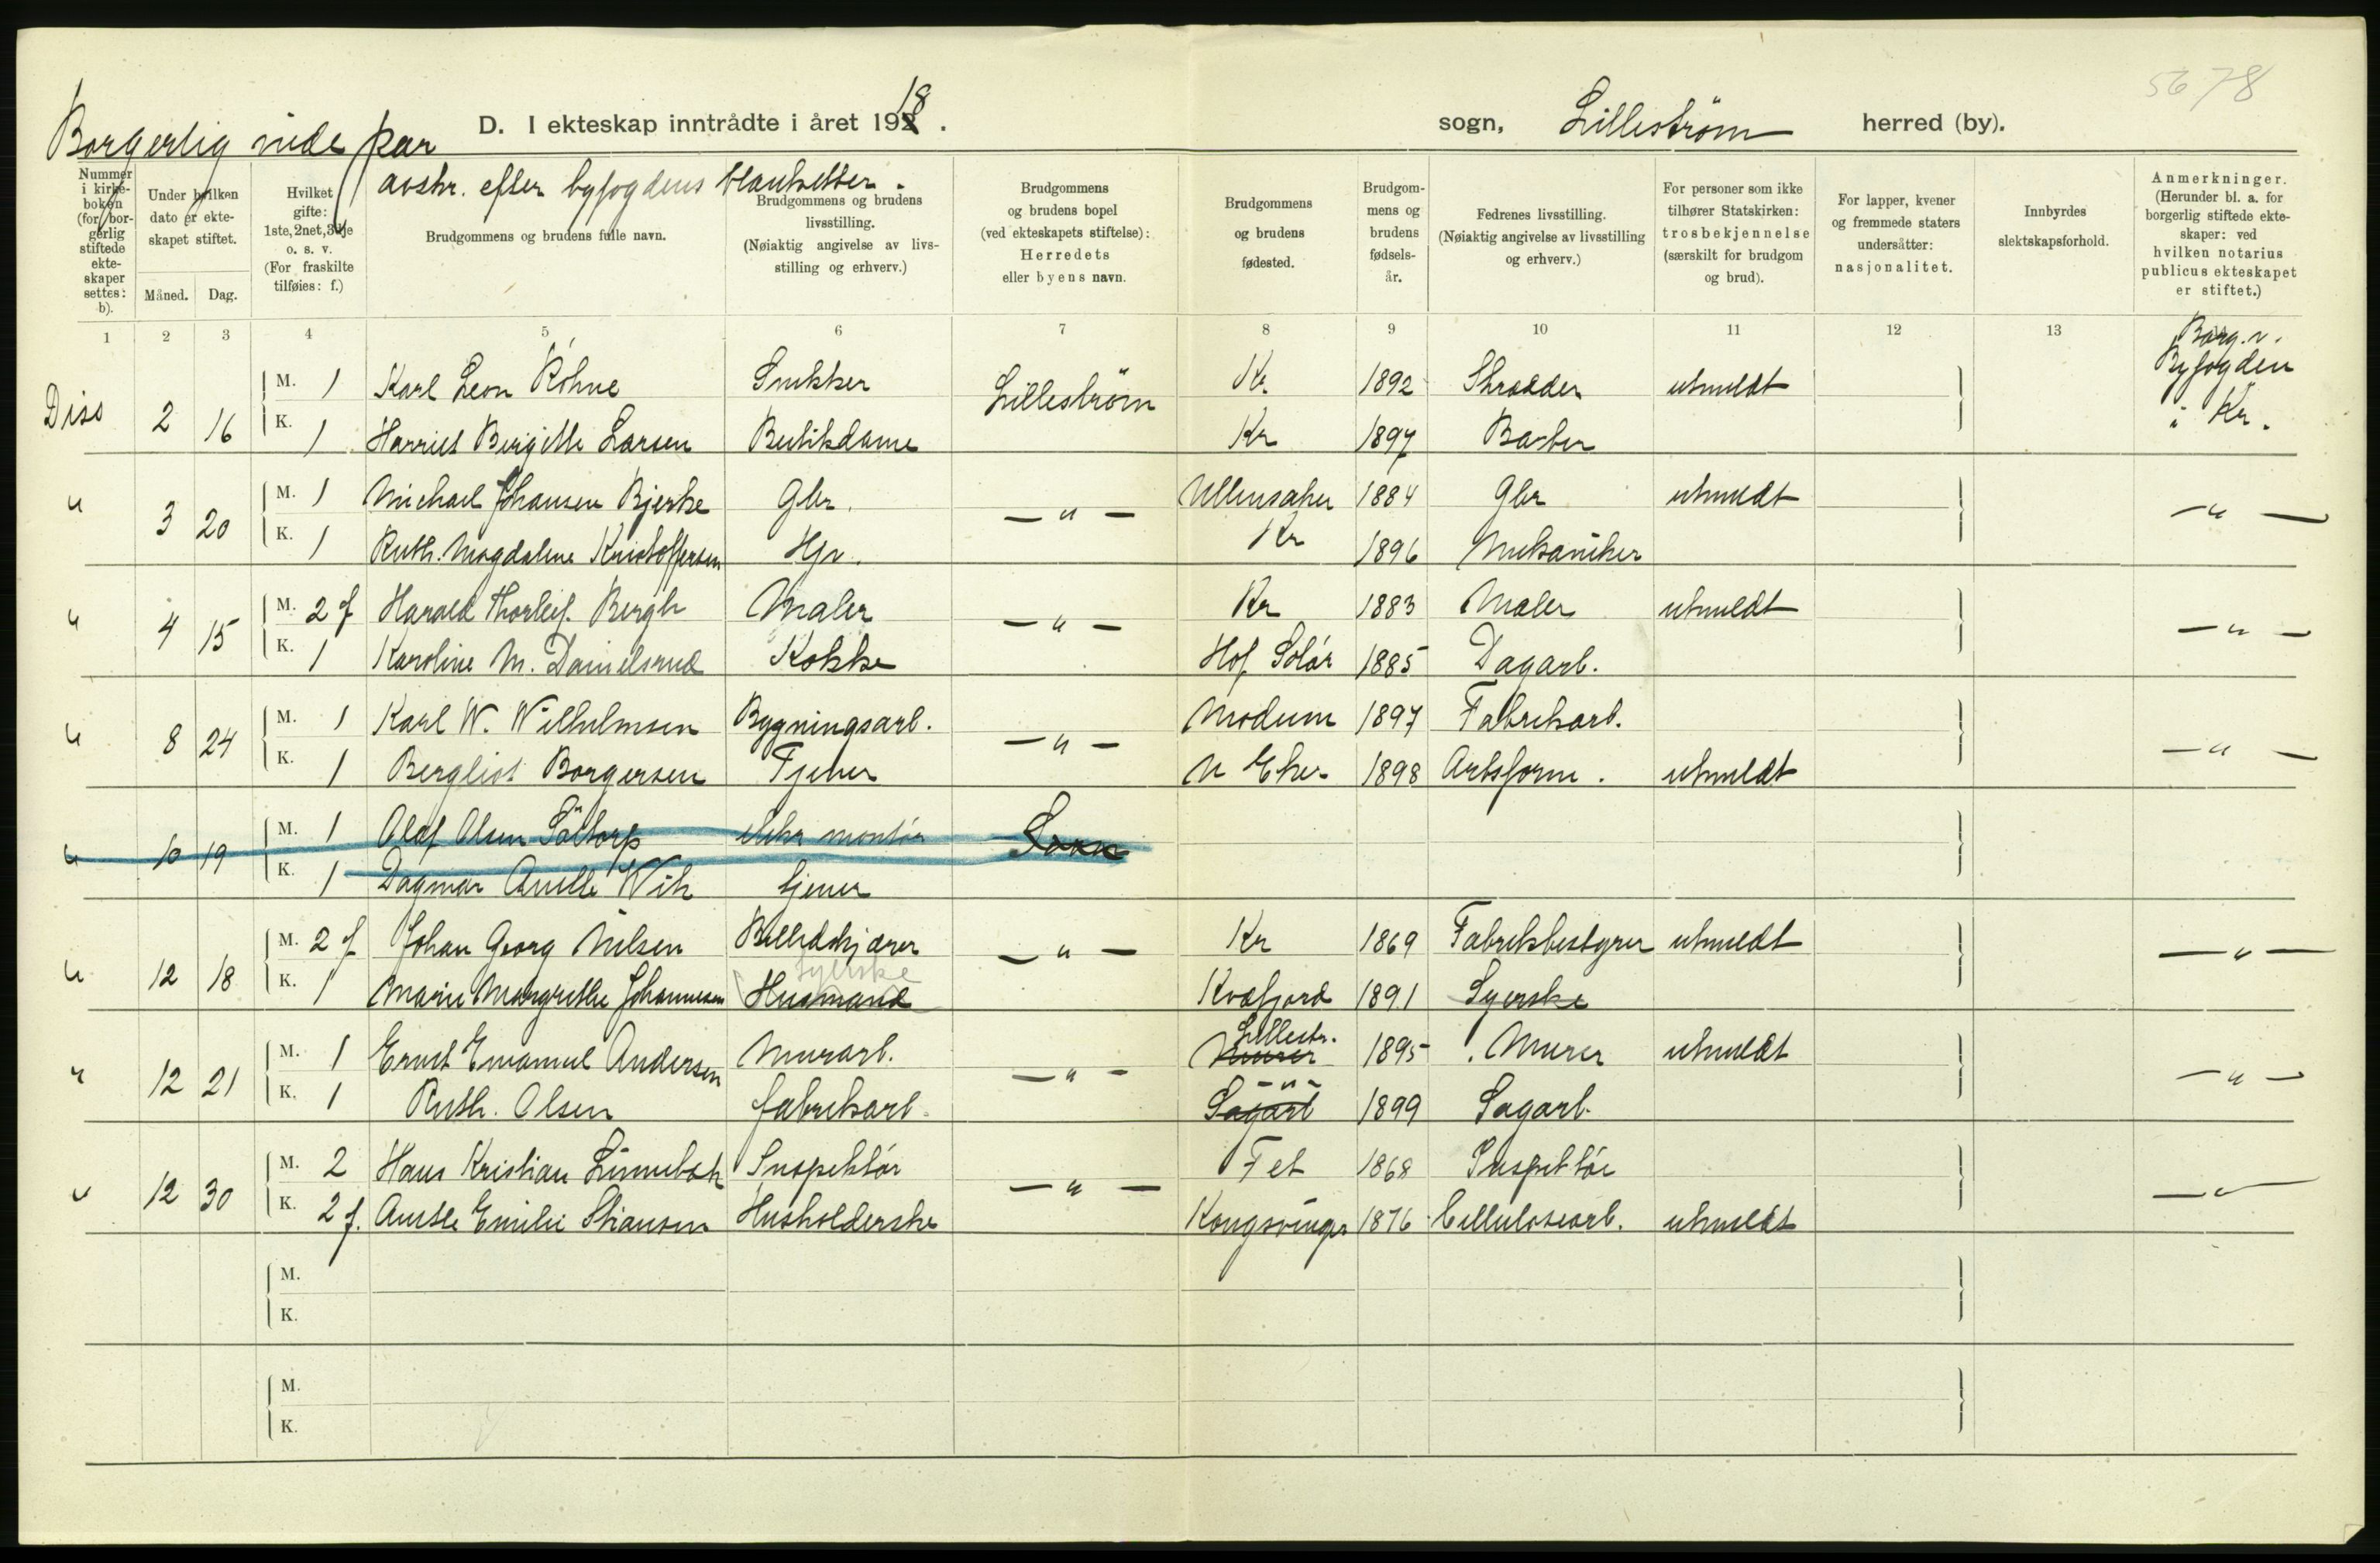 5678
D. I ekteskap inntrådte i året 1918.
sogn, Lilleström herred (by).
Borgerlig viede par
avskr. efter byfogdens blanketter.
Nummer i kirke-boken (for bor-gerlig stiftede ekte-skaper settes: b).
Under hvilken dato er ekte-skapet stiftet.
Måned. Dag.
Hvilket gifte: 1ste, 2net, 3dje o. s. v. (For fraskilte tilføies: f.)
Brudgommens og brudens fulle navn.
Brudgommens og brudens livsstilling. (Nøiaktig angivelse av livs-stilling og erhverv.)
Brudgommens og brudens bopel (ved ekteskapets stiftelse): Herredets eller byens navn.
Brudgommens og brudens fødested.
Brudgom-mens og brudens fødsels-år.
Fedrenes livsstilling. (Nøiaktig angivelse av livsstilling og erhverv.)
For personer som ikke tilhører Statskirken: trosbekjennelse (særskilt for brudgom og brud).
For lapper, kvener og fremmede staters undersåtter: nasjonalitet.
Innbyrdes slektskapsforhold.
Anmerkninger. (Herunder bl. a. for borgerlig stiftede ekte-skaper: ved hvilken notarius publicus ekteskapet er stiftet.)
1 2 3 4 5 6 7 8 9 10 11 12 13
Borg. v. Byfogden i Kr.
Diss 2 16 M. 1 Karl Leon Röhne Snekker Lilleström Kr 1892 Skrædder utmeldt
K. 1 Harriet Bergitte Larsen Butikdame Kr 1897 Barber
" 3 20 M. 1 Michael Johansen Bjerke Gbr. — " — Ullensaker 1884 Gbr utmeldt — " —
K. 1 Ruth. Magdalene Kristoffersen Hjv. Kr 1896 Mekaniker
" 4 15 M. 2 f Harald Thorleif. Bergh Maler — " — Kr 1883 Maler utmeldt — " —
K. 1 Karoline M. Danielsrud Kokke Hof Solør 1885 Dagarb.
" 8 24 M. 1 Karl W. Wilhelmsen Bygningsarb. — " — Modum 1897 Fabrikarb. — " —
K. 1 Bergliot Borgersen Tjener N Eker 1898 Arbsform. utmeldt
" 10 19 M. 1 Olaf Olsen Söltorp elekr montör
K. 1 Dagmar Anette Wik tjener
" 12 18 M. 2 f Johan Georg Nilsen Billedskjærer — " — Kr 1869 Fabrikbestyrer utmeldt — " —
syerske
K. 1 Marie Margrethe Johannesen Husmand Kvæfjord 1891 Syerske
Lillestr.
" 12 21 M. 1 Ernst Emanuel Andersen Murarb. — " — Murer 1895 Murer utmeldt — " —
- " -
K. 1 Ruth. Olsen fabrikarb. Sagarb 1899 Sagarb.
" 12 30 M. 2 Hans Kristian Linnebak Inspektör — " — Fet 1868 Inspektör — " —
K. 2 f. Anette Emilie Stiansen Husholderske Kongsvinger 1876 Cellulosearb. utmeldt
M.
K.
M.
K.